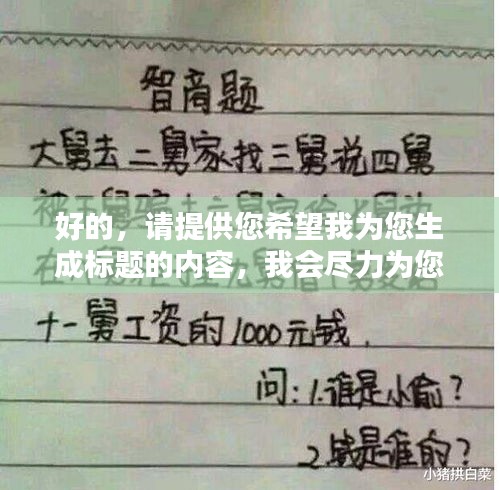 智商题
大舅去二舅家找三舅说四舅
好的，请提供您希望我为您生
成标题的内容，我会尽力为您
十一舅工资的1000元钱，
问：1.谁是小偷？
2.钱是谁的？
小猪拱白菜